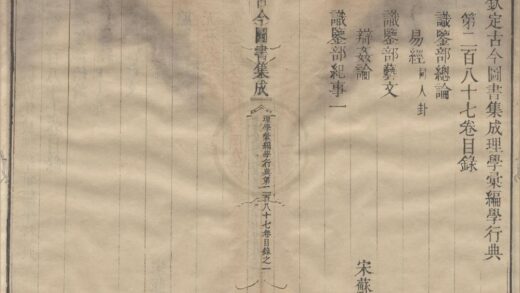 欽定古今圖書集成理學彙編學行典
第二百八十七卷目錄
識鑒部總論
易經 同人卦
識鑒部藝文
辯姦論 宋蘇
識鑒部紀事一
古今圖書集成
理學彙編學行典第二百八十七卷目錄之一